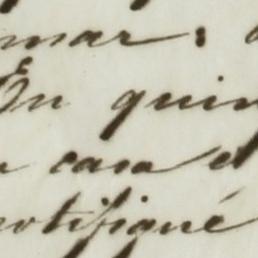 mar: 
En quin
casa el
notifiqué